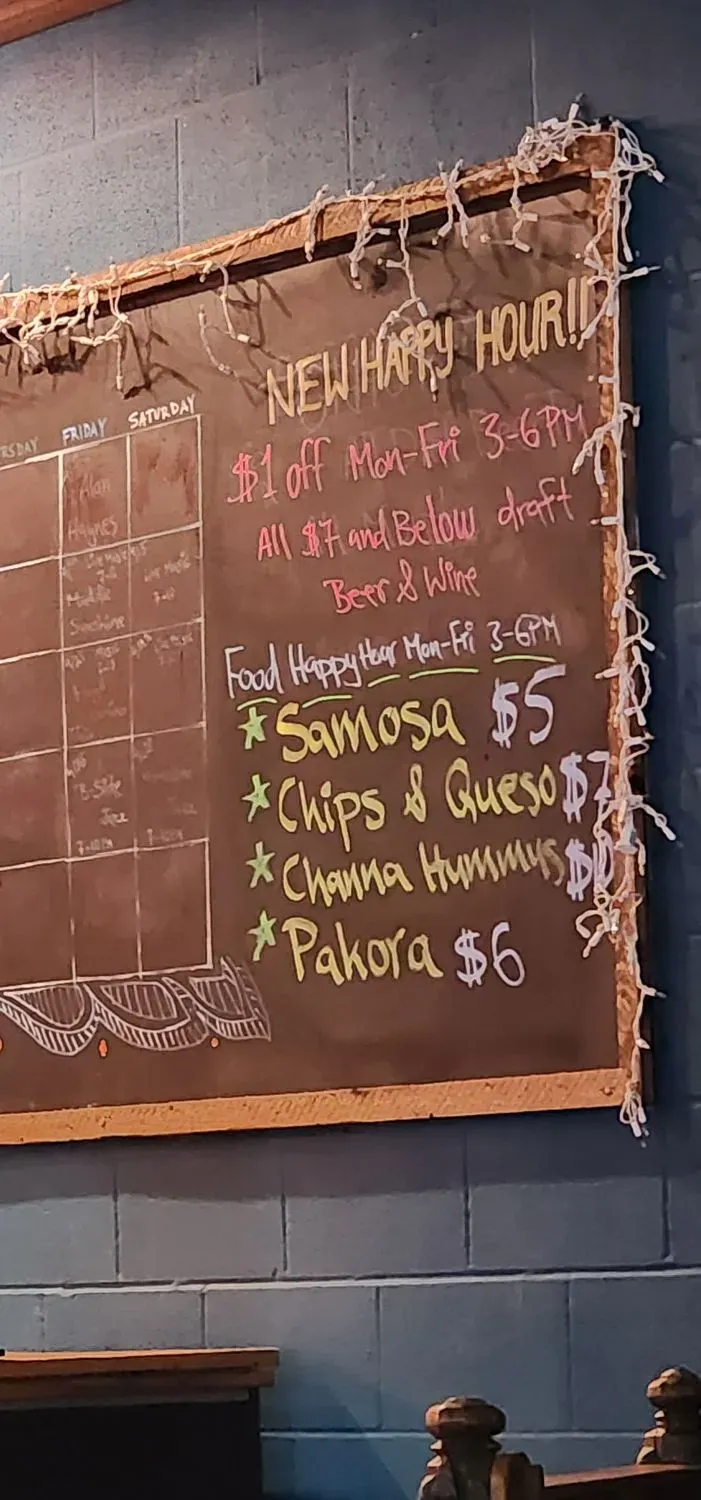 NEW HAPPY HOUR!!
$1 off Mon-Fri 3-6PM
All $7 and Below draft
Beer & Wine
Food Happy Hour Mon-Fri 3-6PM
Samosa $5
Chips & Queso $7
Channa Hummus $10
Pakora $6
RSDAY FRIDAY SATURDAY
Alan
Haynes
Live Music
Sunshine
B-Side
Jazz
7-10PM 7-10PM